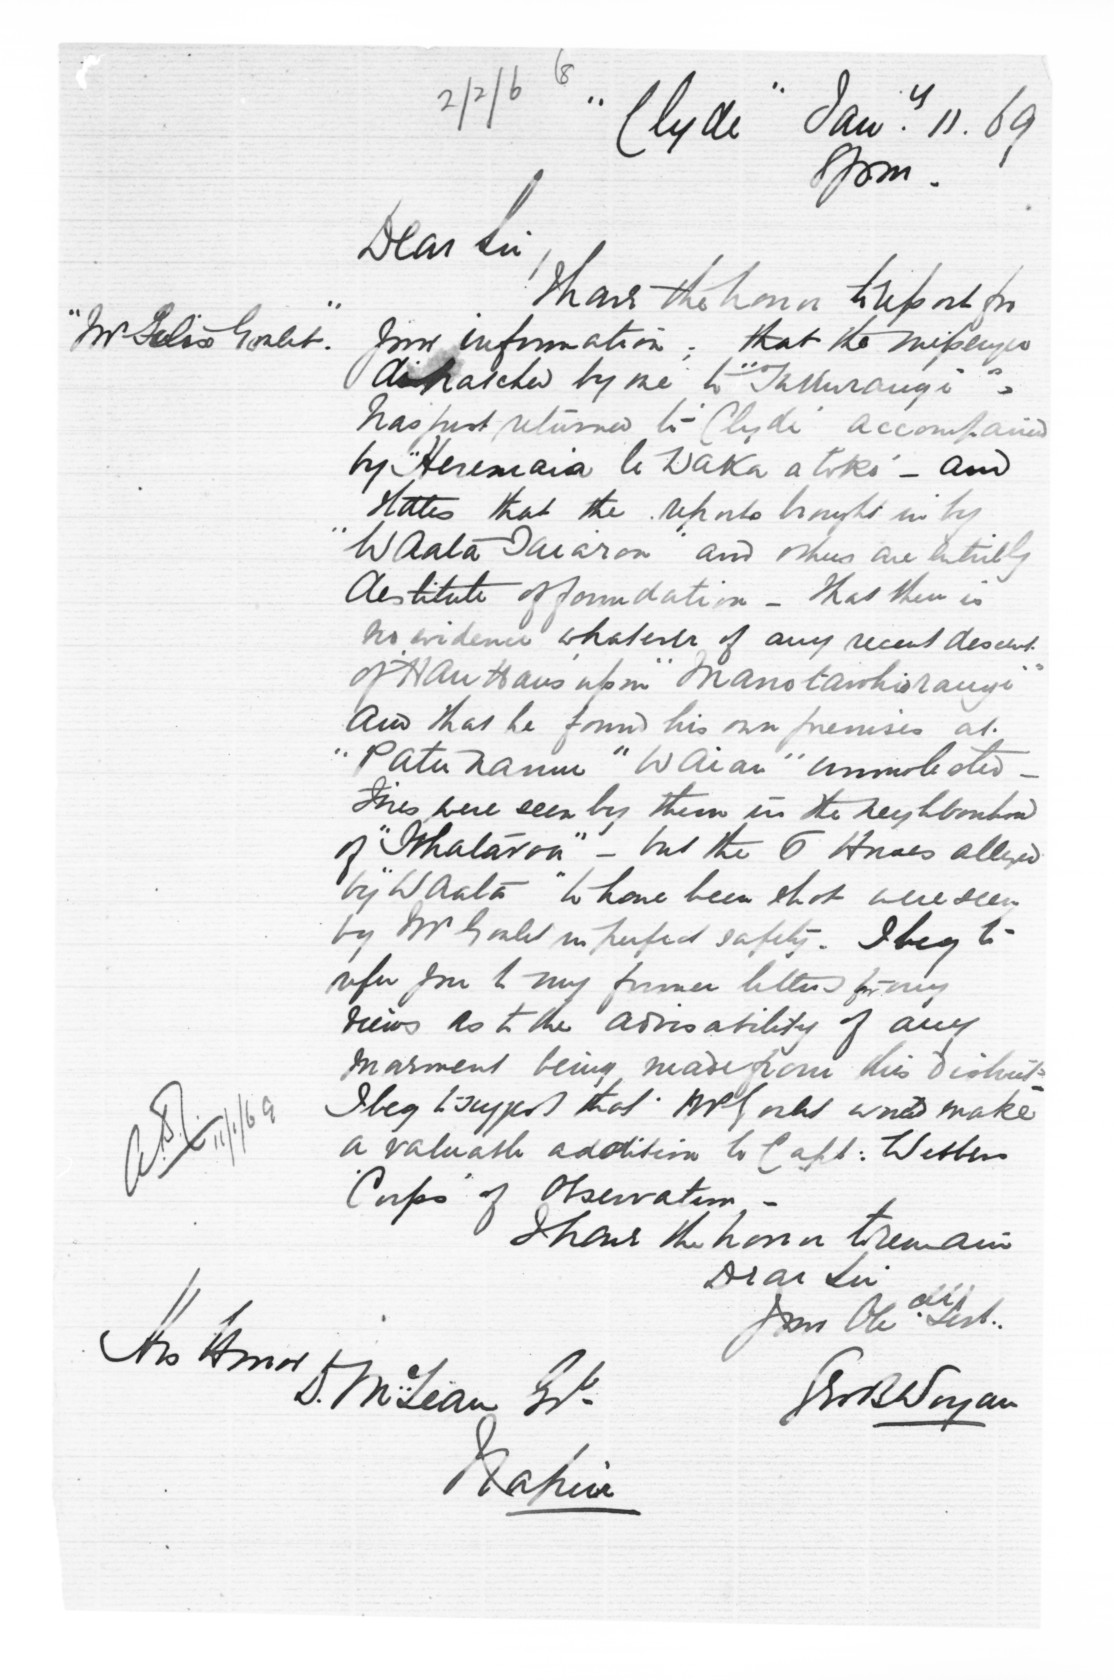 2/2/6 8
"Clyde" Jany. 11. 69
8 pm.
Dear Sir,
I have the honor to report for
"Mr Felix Goulet".
your information; that the messenger
dispatched by me to
has just returned to Clyde accompanied
by "Heremaia te Waka atoko" - and
states that the reports brought in by
"Waata" and others are entirely
destitute of foundation - that there is
no evidence whatever of any recent descent
of 'Hau Haus' upon
and that he found his own premises at
"Waiau" unmolested -
Fires were seen by them in the neighbourhood
of - but the 6 Horses alleged
by "Waata" to have been shot were seen
by Mr Goulet in perfect safety. I beg to
refer you to my former letters for my
views as to the advisability of any
movement being made from this District -
I beg to suggest that Mr Goulet would make
a valuable addition to Capt: Westrns
'Corps' of Observation -
11/1/69
I have the honor to remain
Dear Sir
Your Obedt. Servt.
His Honor
D. McLean Esqr
Geo B Worgan
Napier